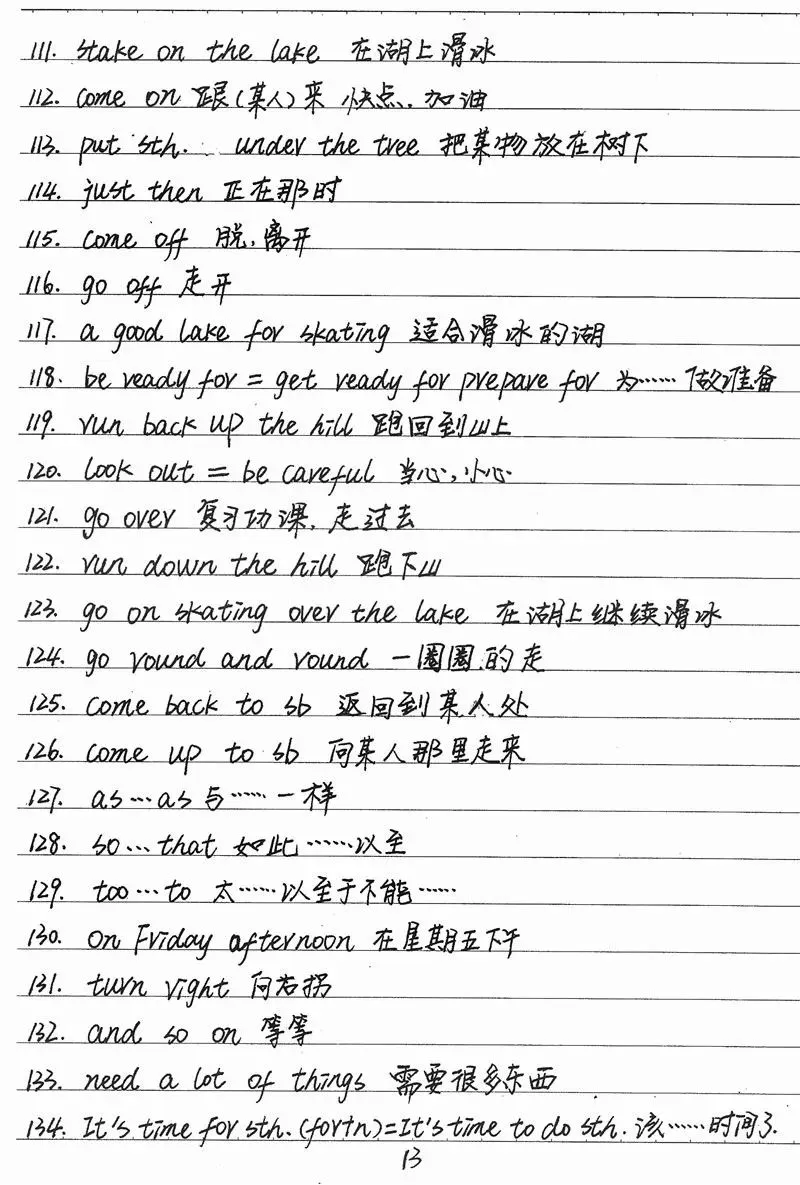 111. stake on the lake 在湖上滑冰
112. come on 跟(某人)来 快点.加油
113. put sth. under the tree 把某物放在树下
114. just then 正在那时
115. come off 脱,离开
116. go off 走开
117. a good lake for skating 适合滑冰的湖
118. be ready for = get ready for prepare for 为……做准备
119. run back up the hill 跑回到山上
120. look out = be careful 当心,小心
121. go over 复习功课,走过去
122. run down the hill 跑下山
123. go on skating over the lake 在湖上继续滑冰
124. go round and round 一圈圈的走
125. come back to sb 返回到某人处
126. come up to sb 向某人那里走来
127. as…as 与……一样
128. so…that 如此……以至
129. too…to 太……以至于不能……
130. on Friday afternoon 在星期五下午
131. turn right 向右拐
132. and so on 等等
133. need a lot of things 需要很多东西
134. It's time for sth. (for+n)=It's time to do sth. 该……时间了.
13